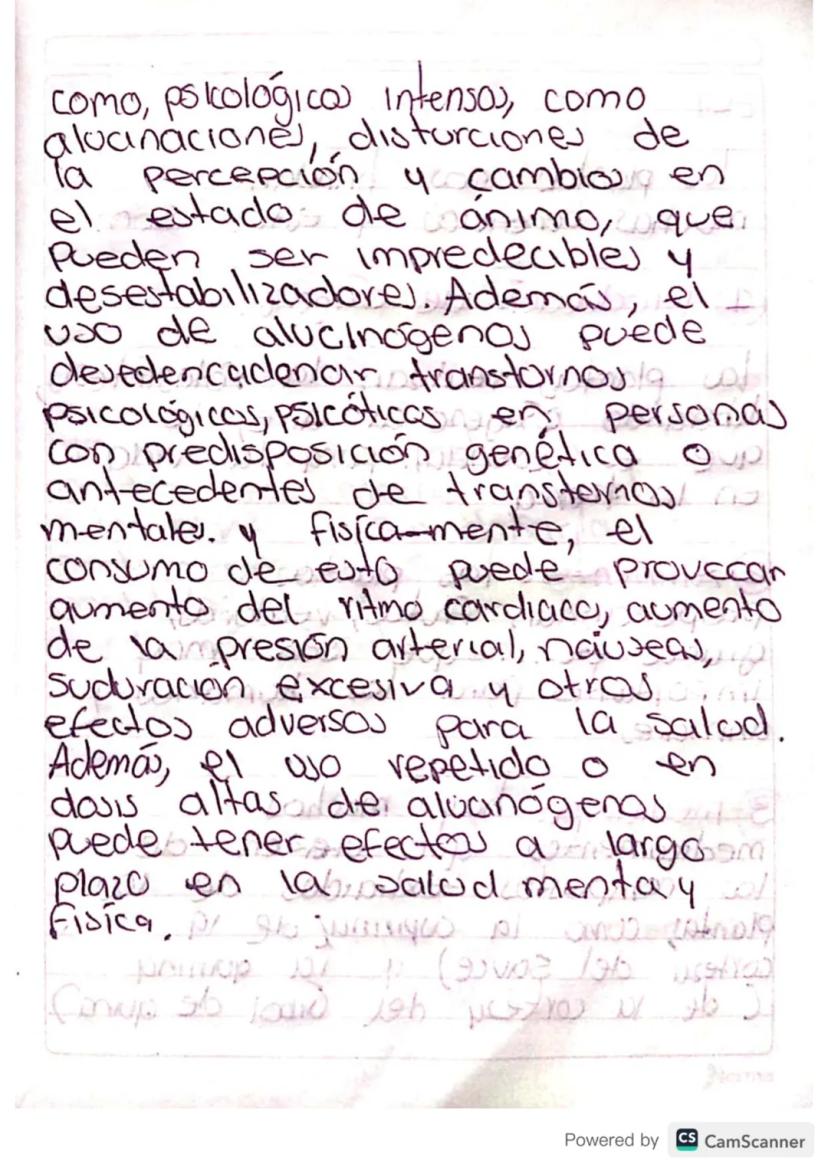 como, psicológicos intensos, como
alucinaciones, disturciones de
la percepción y cambios en
el estado de ánimo, que
pueden ser impredecibles y
desestabilizadores. Además, el
uso de alucinógenos puede
desedencadenar transtornos
psicológicos, psicóticos en personas
con predisposición genética o
antecedentes de transternos
mentales. y físíca-mente, el
consumo de esto puede provoccar
aumento del ritmo cardiaco, aumento
de la presión arterial, naúseas,
suduración excesiva y otros
efectos adversos para la salud.
Además, el uso repetido o en
dosis altas de alucinógenos
puede tener efectos a largo
plazo en la salud menta y
física.
Powered by CS CamScanner